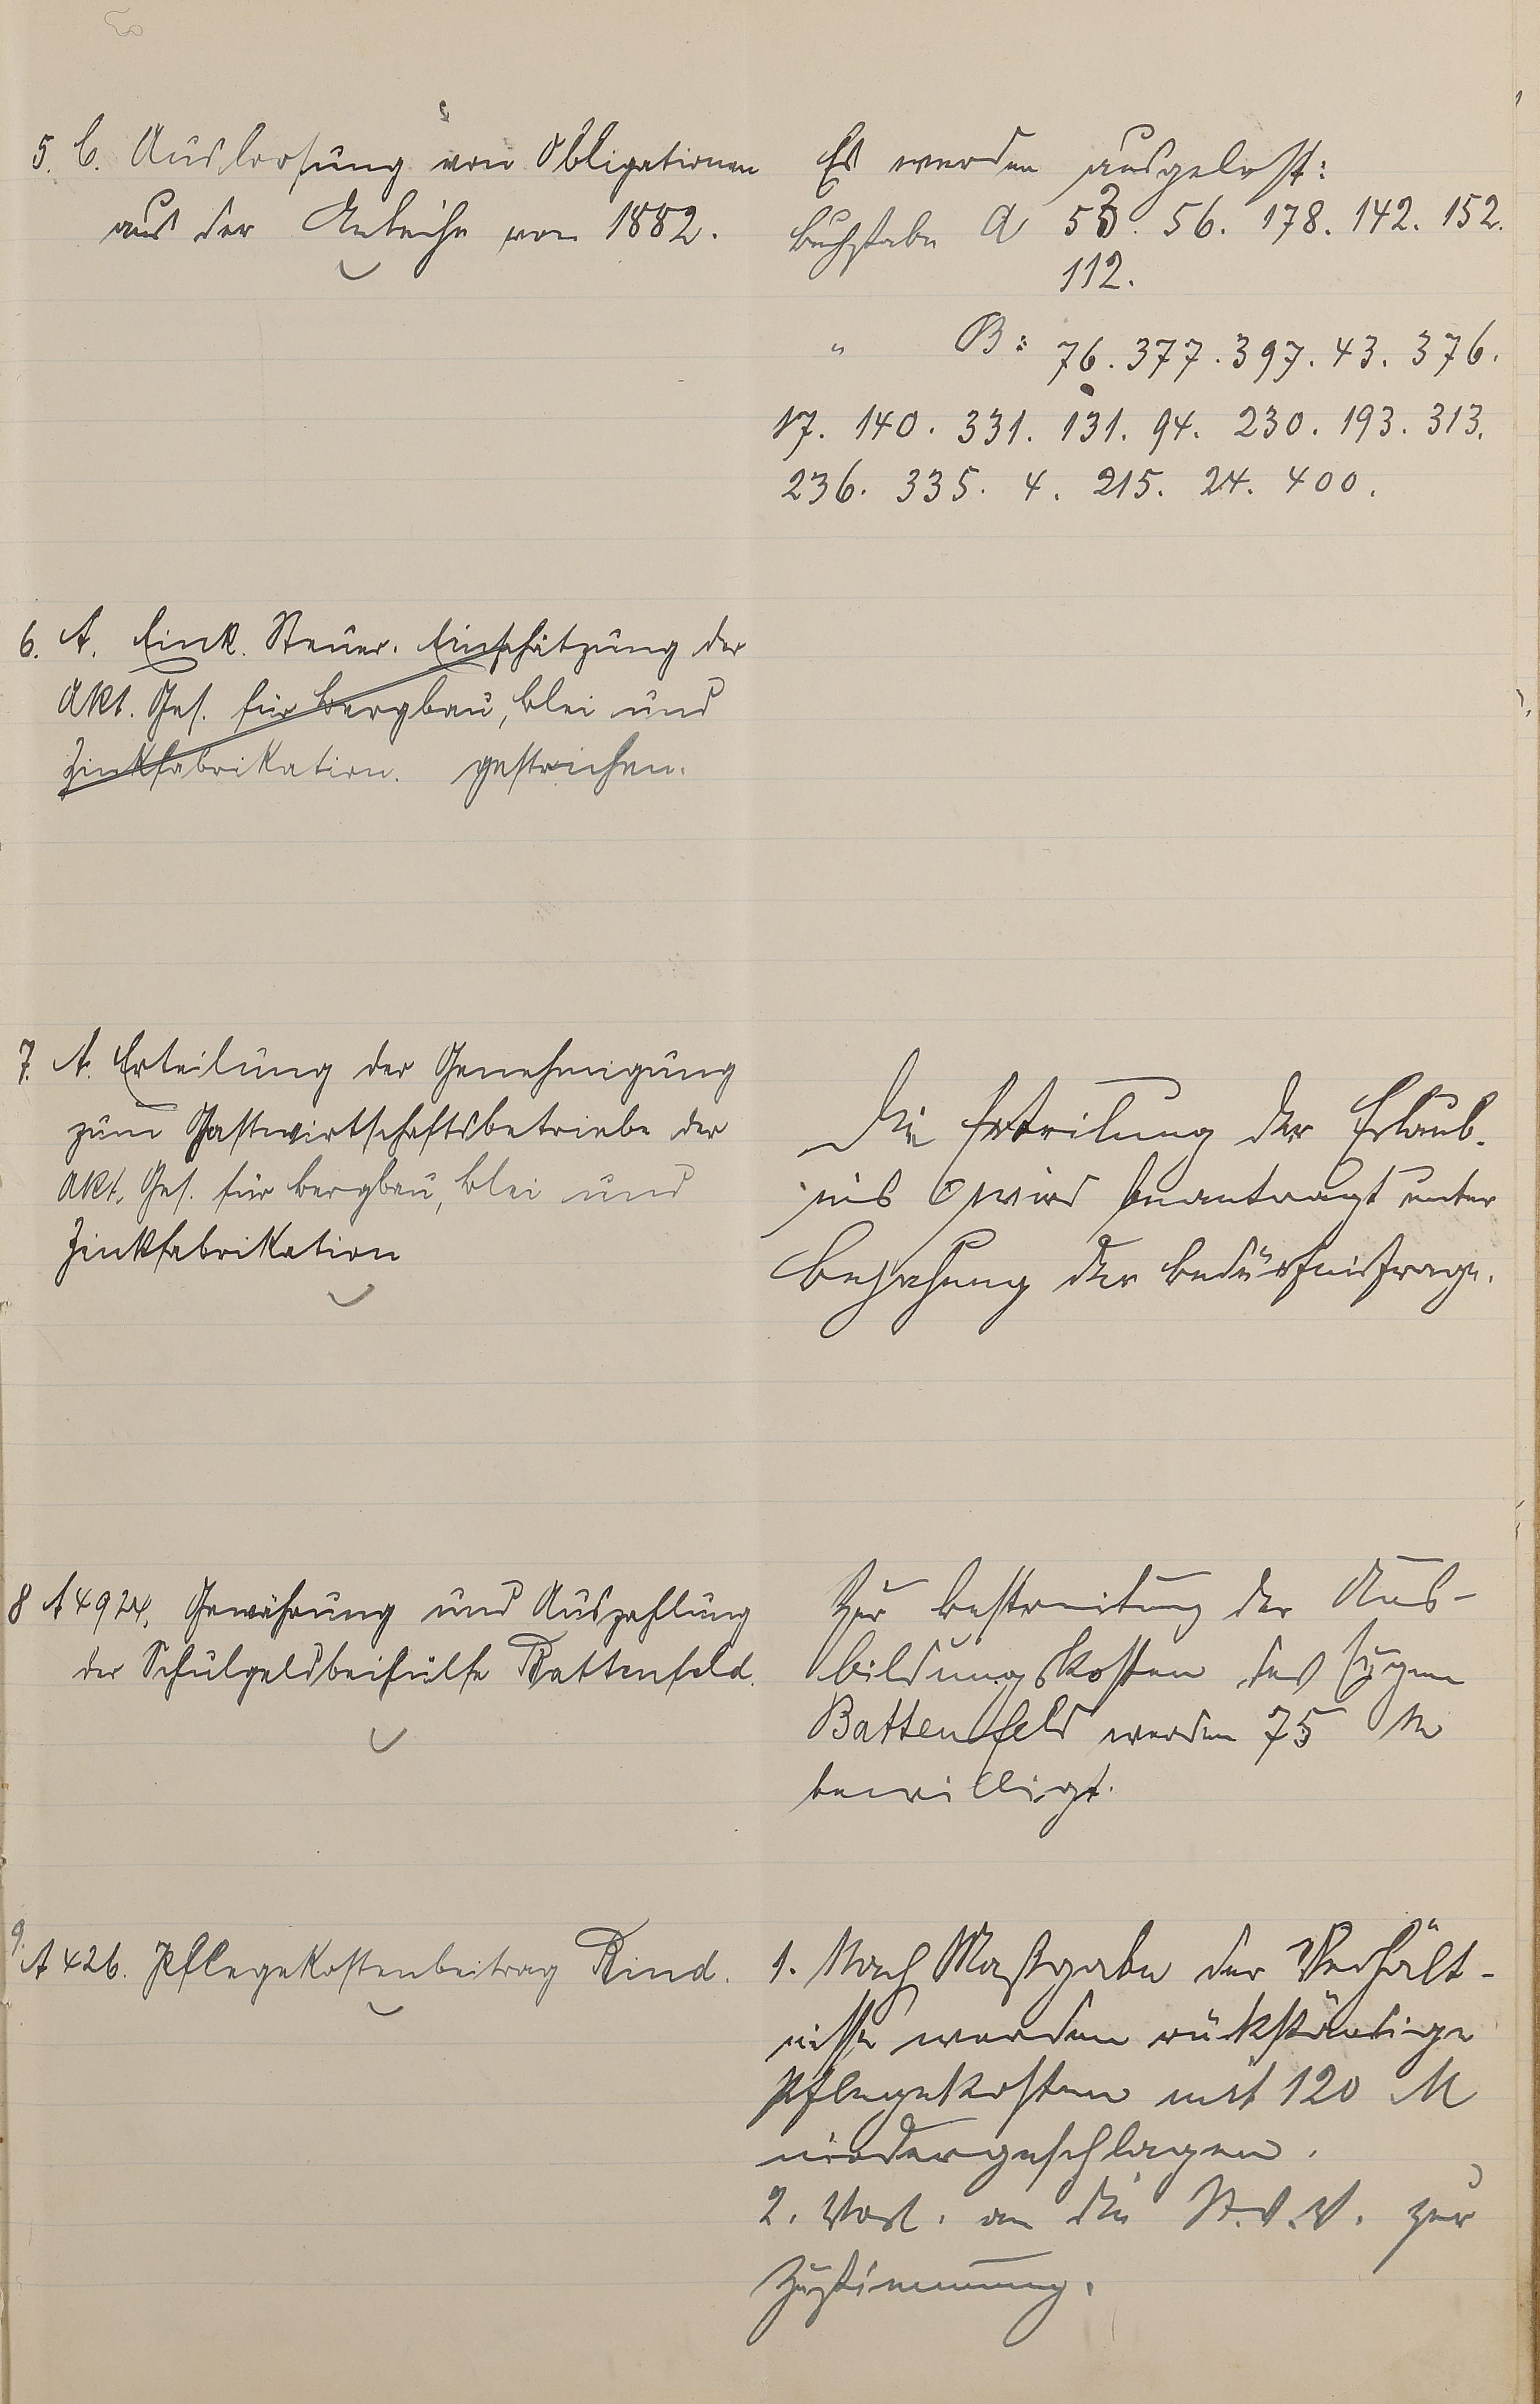 5. C. Auslosung von Obligationen
aus der Anleihe von 1882.
Es werden ausgelost:
Buchstabe A 53. 56. 178. 142. 152.
112.
" B: 76. 377. 397. 43. 376.
17. 140. 331. 131. 94. 230. 193. 313.
236. 335. 4. 215. 24. 400.
6. A. Eink. Steuer. Einschätzung der
Akt. Ges. für Bergbau, Blei und
Zinkfabrikation. gestrichen.
7. A. Erteilung der Genehmigung
zum Gastwirtschaftsbetriebe der
Akt. Ges. für Bergbau, Blei und
Zinkfabrikation
Die Erteilung der Erlaub-
nis wird beantragt unter
Bejahung der Bedürfnisfrage.
8 A 4924. Gewährung und Auszahlung
der Schulgeldbeihülfe Battenfeld.
Zur Bestreitung der Aus-
bildungskosten des Eugen
Battenfeld werden 75 M
bewilligt.
9. A 426. Pflegekostenbeitrag Rind.
1. Nach Maßgabe der Verhält-
nisse werden rückständige
Pflegekosten mit 120 M
niedergeschlagen.
2. Vorl. an die St.V.V. zur
Zustimmung.